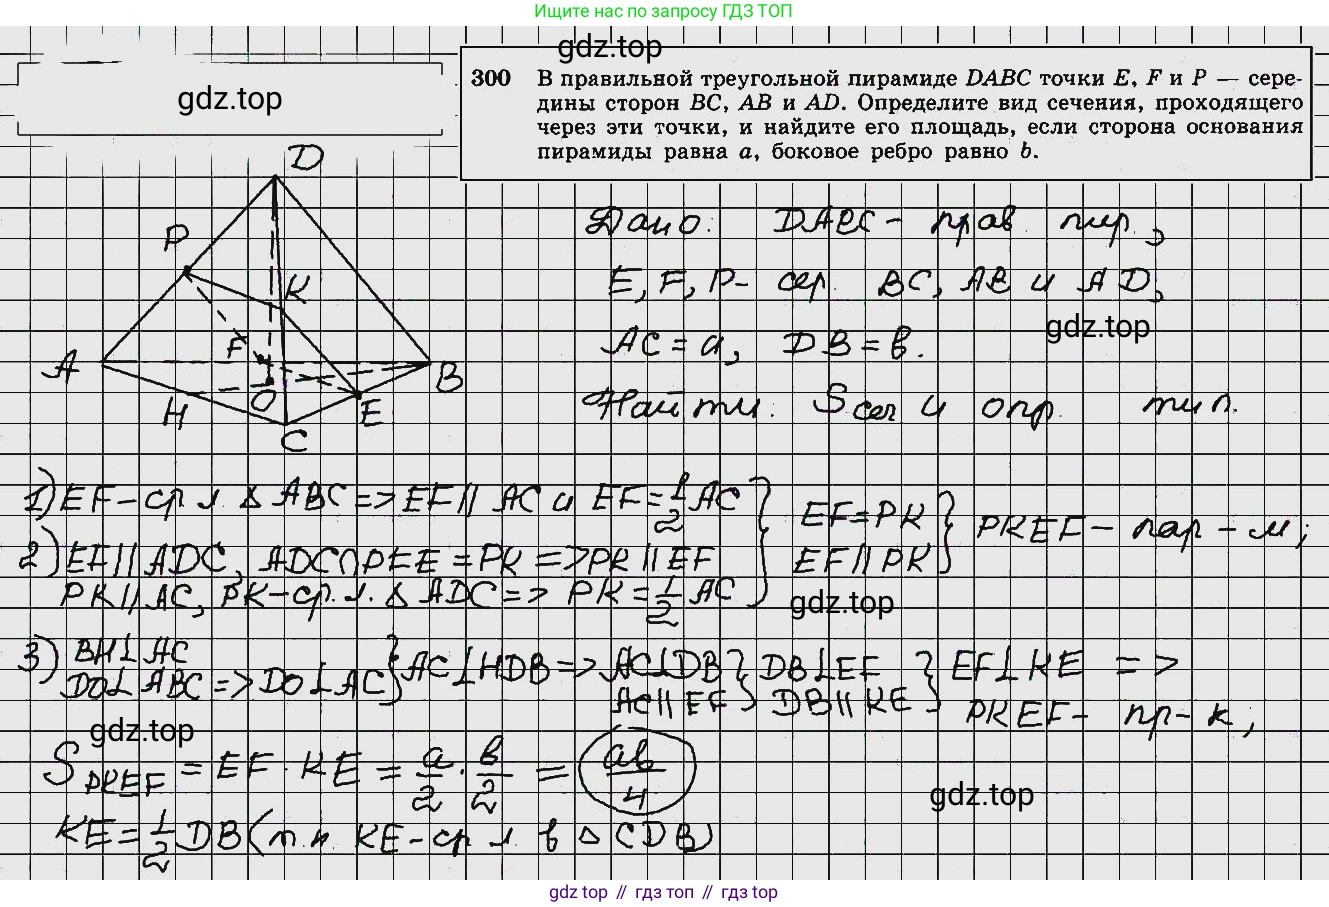 Ищите нас по запросу ГДЗ ТОП
gdz.top
gdz.top
300 В правильной треугольной пирамиде DABC точки E, F и P — сере-
дины сторон BC, AB и AD. Определите вид сечения, проходящего
через эти точки, и найдите его площадь, если сторона основания
пирамиды равна a, боковое ребро равно b.
D
P
K
F
A
B
H
O
E
C
Дано: DABC - прав. пир.,
E, F, P - сер. BC, AB и AD,
gdz.top
AC = a, DB = b.
Найти: Sсеч и опр. тип.
1) EF - ср. л. Δ ABC => EF || AC и EF = 1/2 AC
2) EF || ADC, ADC ∩ PEF = PK => PK || EF
PK || AC, PK - ср. л. Δ ADC => PK = 1/2 AC
} EF = PK
EF || PK } PKEF - пар-м;
gdz.top
3) BH ⊥ AC
DO ⊥ ABC => DO ⊥ AC } AC ⊥ HDB => AC ⊥ DB
AC || EF } DB ⊥ EF
DB || KE } EF ⊥ KE =>
PKEF - пр-к,
gdz.top
S PKEF = EF · KE = a/2 · b/2 = ab/4
gdz.top
KE = 1/2 DB (т.к. KE - ср. л. в Δ CDB)
gdz top // гдз топ // gdz top